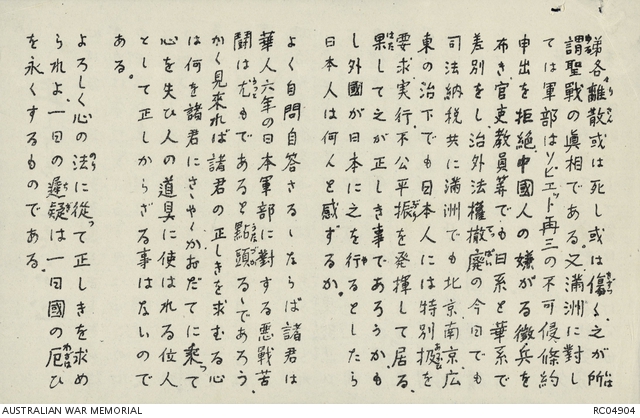 弟各離散或は死し或は傷く、之が所
謂聖戰の眞相である。又滿洲に對し
ては軍部はソビエット再三の不可侵條約
申出を拒絶、中國人の嫌がる徴兵を
布き、官吏教員等でも日系と華系で
差別をし治外法權撤廢の今日でも
司法納税共に滿洲でも北京、南京、広
東の治下でも日本人には特別扱を
要求、実行、不公平振を発揮して居る、
果して之が正しき事であろうかも
し外國が日本に之を行るとしたら
日本人は何んと感ずるか。
よく自問自答さるゝならば諸君は
華人六年の日本軍部に對する悪戰苦
鬪は尤もであると點頭るゝであろう、
かく見來れば諸君の正しきを求むる心
は何を諸君にさゝやくかおだてに乘って
心を失ひ人の道具に使はれる位人
として正しからざる事はないので
ある。
よろしく心の法に從って正しきを求め
られよ、一日の遲疑は一日國の厄ひ
を永くするものである。
AUSTRALIAN WAR MEMORIAL
RC04904